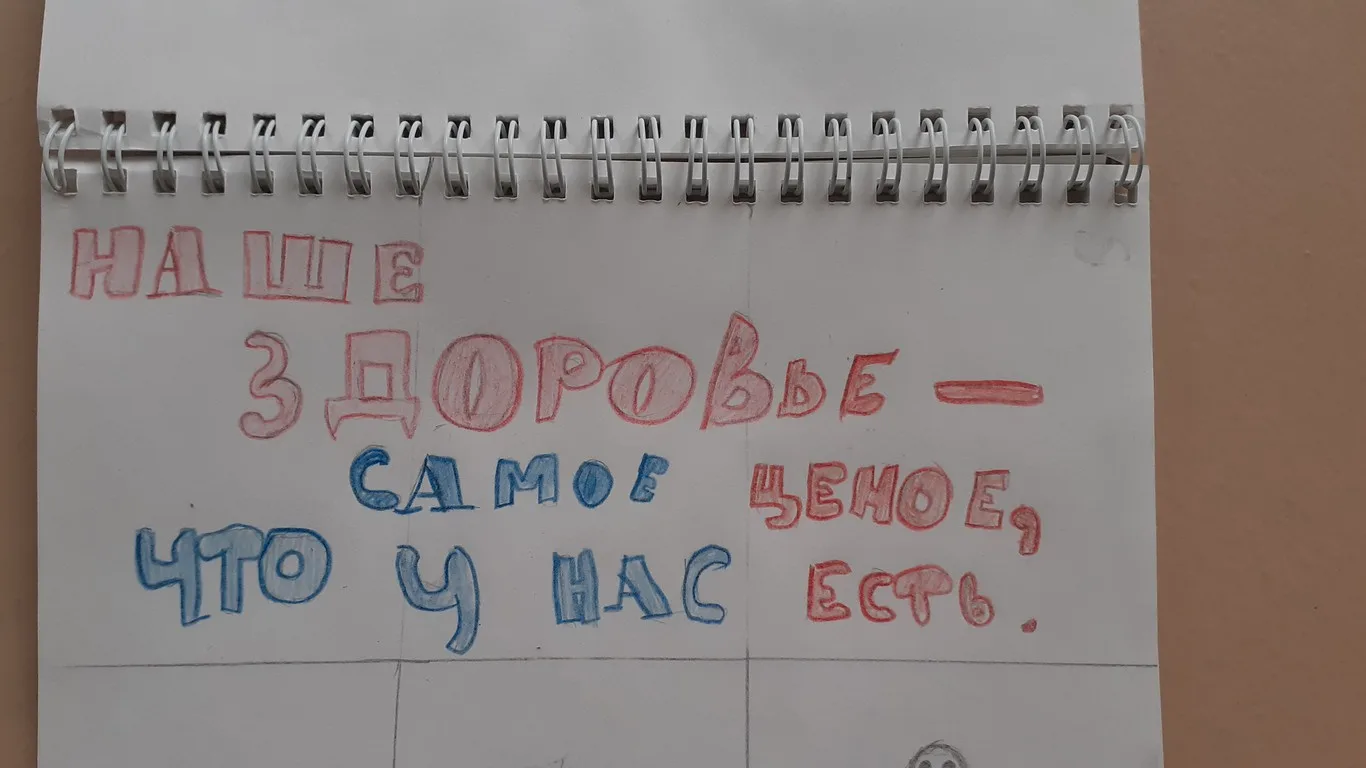 НАШЕ
ЗДОРОВЬЕ —
САМОЕ ЦЕНОЕ,
ЧТО У НАС ЕСТЬ.